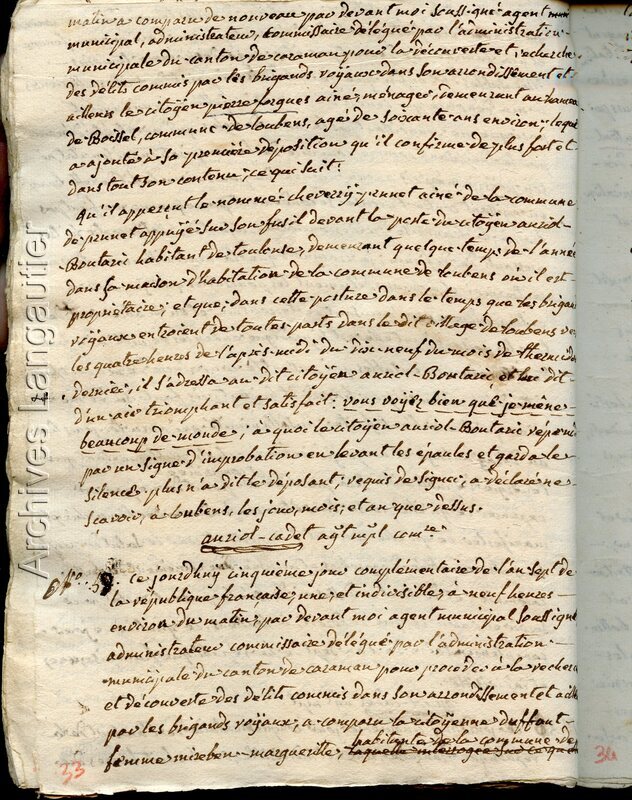 matin a comparu de nouveau par devant moi soussigné agent
municipal, administrateur, commissaire délégué par l'administration
municipale du canton de caraman pour la découverte et recherche
des délits commis par les brigands royaux dans son arrondissement et
ailleurs le citoyen pierre forgues ainé, ménager, demeurant au hameau
de Boissel, commune de loubens, agé de soixante ans environ; lequel
a ajouté à sa première déposition qu'il confirme de plus fort et
dans tout son contenu, ce qui suit:
Qu'il apperçut le nommé cheverry prunet ainé de la commune
de prunet appuyé sur son fusil devant la porte du citoyen auriol-
Boutaric habitant de toulouse, demeurant quelque temps de l'année
dans sa maison d'habitation de la commune de loubens où il est
propriétaire; et que, dans cette posture dans le temps que les brigands
royaux entroient de toutes parts dans le dit village de loubens vers
les quatre heures de l'après-midi du dix neuf du mois de thermidor
dernier, il s'adressa au dit citoyen auriol-Boutaric et lui dit
d'un air triomphant et satisfait: vous voyez bien que je mène
beaucoup de monde; à quoi le citoyen auriol-Boutaric répondit
par un signe d'improbation en levant les épaules et garda le
silence plus n'a dit le déposant; requis de signer, a déclaré ne
scavoir, à loubens, les jour, mois, et an que dessus.
auriol-cadet agt mpl comre
ce jourdhuy cinquième jour complémentaire de l'an sept de
la république française, une, et indivisible, a neuf heures
environ du matin, par devant moi agent municipal soussigné
administrateur commissaire délégué par l'administration
municipale du canton de caraman pour procéder à la recherche
et découverte des délits commis dans son arrondissement et ailleurs
par les brigands royaux, a comparu la citoyenne duffaut-
femme mireben-marguerite, habitante de la commune de
laquelle interrogée sur ce que
33
34
Archives Langautier